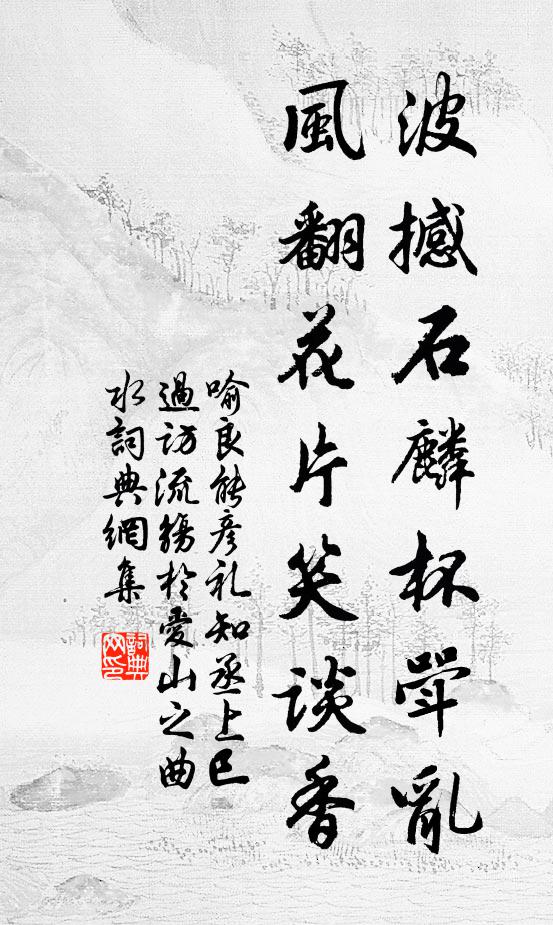 波撼石麟杯斝亂
風翻花片笑談香
喻良能彥礼知丞上巳
過访流觴於愛山之曲
水詞典網集
詞典
网印